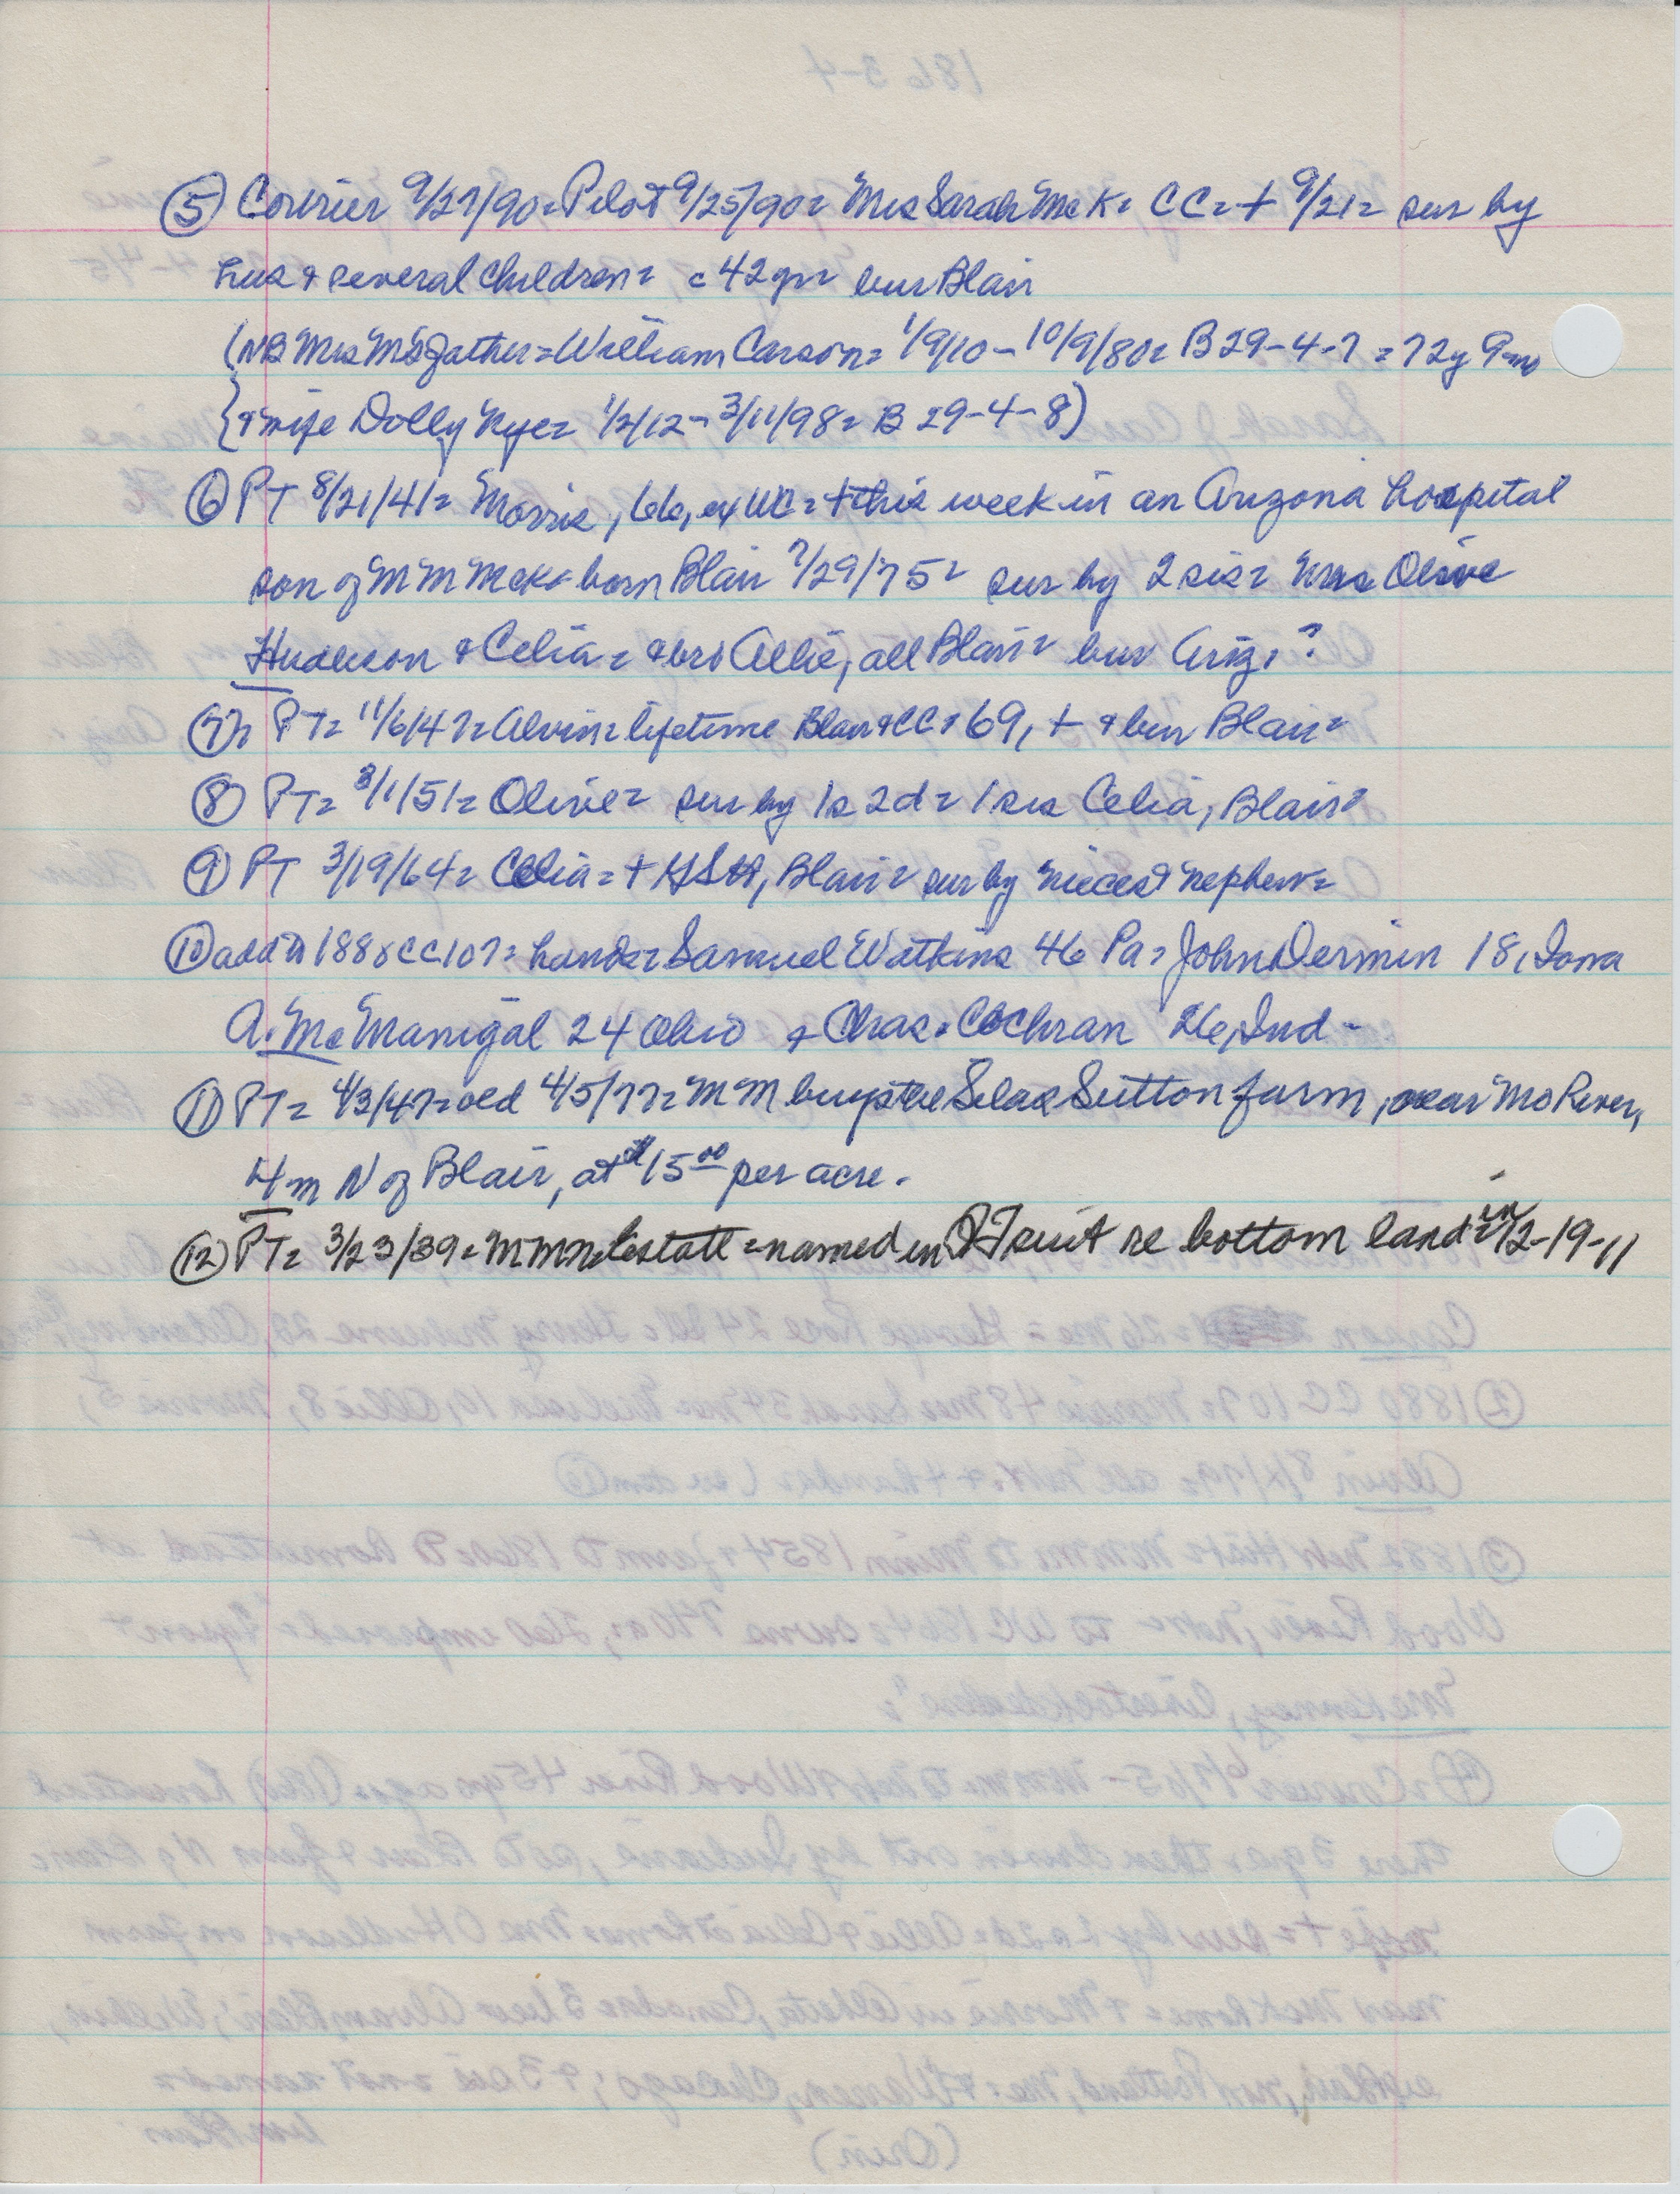 ⑤ Courier 9/27/90= Pilot 9/25/90= Mrs Sarah McK= CC= + 9/21= sur by
hus & several children= c 42 yr= bur Blair
(NB Mrs M's father = William Carson= 1/9/10 - 10/9/80= B 29-4-7 = 72y 9mo
{& wife Dolly Nye= 1/2/12 - 3/11/98= B 29-4-8)
⑥ PT 8/21/41= Morris, 66, ex WC= + this week in an Arizona hospital
son of M M McK= born Blair 7/29/75= sur by 2 sis= Mrs Olive
Hudleson & Celia= & bro Allie, all Blair= bur Ariz?
⑦ PT= 11/6/47= Alvin= lifetime Blair & CC= 69, + & bur Blair=
⑧ PT= 3/1/51= Olive= sur by 1s 2d= 1 sis Celia, Blair=
⑨ PT 3/19/64= Celia= + Blair= sur by nieces & nephews=
⑩ add to 1880 CC 107= hands= Samuel Watkins 46 Pa= John Dermin 18, Iowa
A. McManigal 24 Ohio & Chas. Cochran 26, Ind -
⑪ PT= 4/3/47= old 4/5/77= M M buys the Silas Sutton farm, near Mo River,
4 m N of Blair, at $15.00 per acre.
⑫ PT= 3/23/39= estate = named in QT suit re bottom land= in 12-19-11